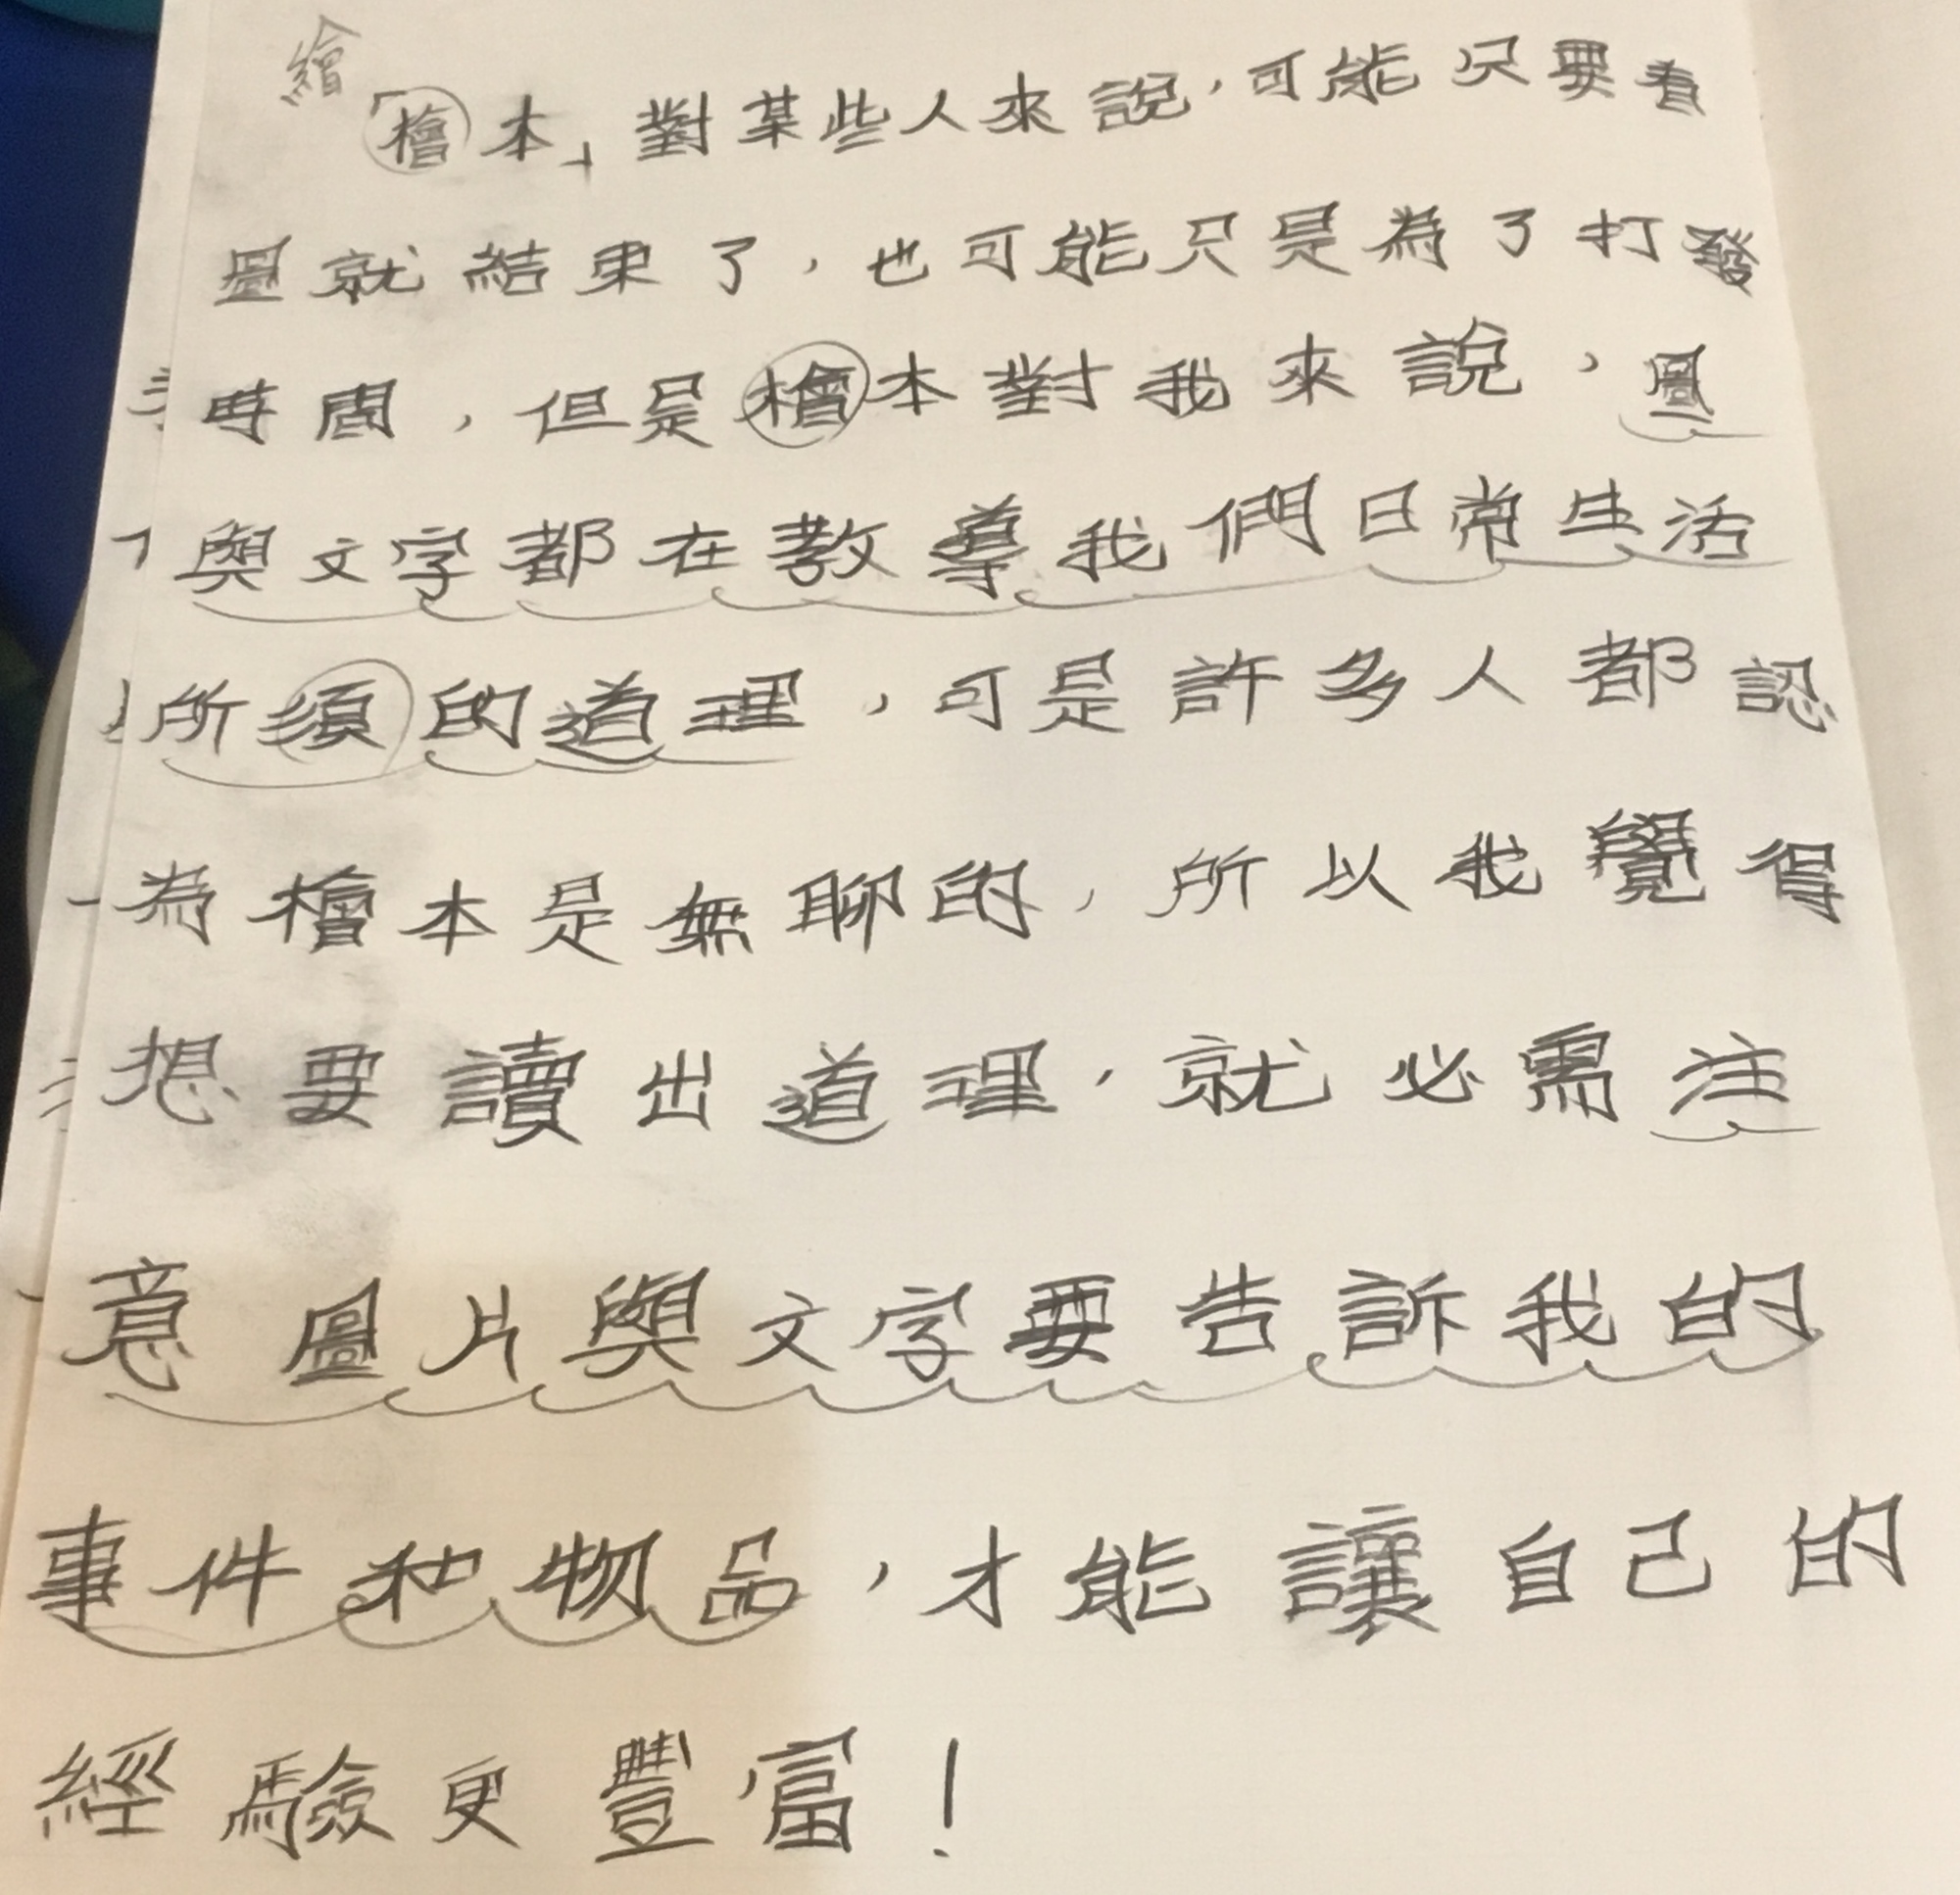 繪
「檜本」對某些人來說，可能只要看
圖就結束了，也可能只是為了打發
時間，但是檜本對我來說，圖
與文字都在教導我們日常生活
所須的道理，可是許多人都認
為檜本是無聊的，所以我覺得
想要讀出道理，就必需注
意圖片與文字要告訴我的
事件和物品，才能讓自己的
經驗更豐富！